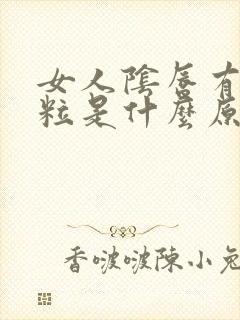 女人陰唇有
粒是什麼原
香啵啵陳小兔